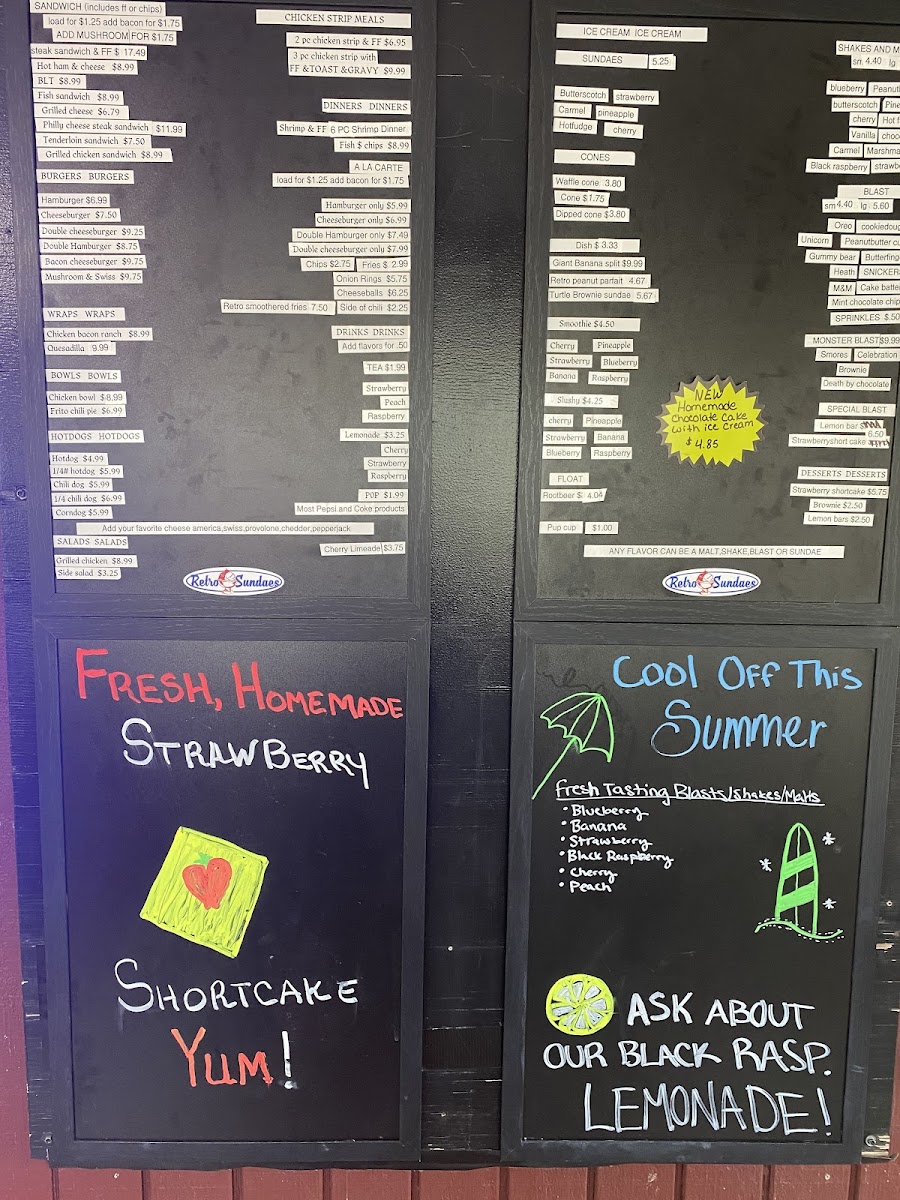 SANDWICH (includes ff or chips)
load for $1.25 add bacon for $1.75
ADD MUSHROOM FOR $1.75
steak sandwich & FF $ 17.49
Hot ham & cheese $8.99
BLT $8.99
Fish sandwich $8.99
Grilled cheese $6.79
Philly cheese steak sandwich $11.99
Tenderloin sandwich $7.50
Grilled chicken sandwich $8.99
BURGERS BURGERS
Hamburger $6.99
Cheeseburger $7.50
Double cheeseburger $9.25
Double Hamburger $8.75
Bacon cheeseburger $9.75
Mushroom & Swiss $9.75
WRAPS WRAPS
Chicken bacon ranch $8.99
Quesadilla 9.99
BOWLS BOWLS
Chicken bowl $8.99
Frito chili pie $6.99
HOTDOGS HOTDOGS
Hotdog $4.99
1/4# hotdog $5.99
Chili dog $5.99
1/4 chili dog $6.99
Corndog $5.99
Add your favorite cheese america,swiss,provolone,chedder,pepperjack
SALADS SALADS
Grilled chicken $8.99
Side salad $3.25
CHICKEN STRIP MEALS
2 pc chicken strip & FF $6.95
3 pc chicken strip with
FF &TOAST &GRAVY $9.99
DINNERS DINNERS
Shrimp & FF 6 PC Shrimp Dinner
Fish $ chips $8.99
A LA CARTE
load for $1.25 add bacon for $1.75
Hamburger only $5.99
Cheeseburger only $6.99
Double Hamburger only $7.49
Double cheeseburger only $7.99
Chips $2.75 Fries $ 2.99
Onion Rings $5.75
Cheeseballs $6.25
Retro smoothered fries 7.50 Side of chili $2.25
DRINKS DRINKS
Add flavors for .50
TEA $1.99
Strawberry
Peach
Raspberry
Lemonade $3.25
Cherry
Strawberry
Raspberry
POP $1.99
Most Pepsi and Coke products
Cherry Limeade $3.75
Retro Sundaes
ICE CREAM ICE CREAM
SUNDAES 5.25
Butterscotch strawberry
Carmel pineapple
Hotfudge cherry
CONES
Waffle cone 3.80
Cone $1.75
Dipped cone $3.80
Dish $ 3.33
Giant Banana split $9.99
Retro peanut parfait 4.67
Turtle Brownie sundae 5.67
Smoothie $4.50
Cherry Pineapple
Strawberry Blueberry
Banana Raspberry
Slushy $4.25
cherry Pineapple
Strawberry Banana
Blueberry Raspberry
FLOAT
Rootbeer $ 4.04
Pup cup $1.00
NEW
Homemade
Chocolate Cake
with ice cream
$ 4.85
SHAKES AND M
sm 4.40 lg
blueberry Peanut
butterscotch Pine
cherry Hot f
Vanilla choc
Carmel Marshma
Black raspberry strawb
BLAST
sm 4.40 lg 5.60
Oreo cookiedoug
Unicorn Peanutbutter cu
Gummy bear Butterfing
Heath SNICKER
M&M Cake batte
Mint chocolate chip
SPRINKLES $.50
MONSTER BLAST $9.99
Smores Celebration
Brownie
Death by chocolate
SPECIAL BLAST
Lemon bar
6.50
Strawberryshort cake
DESSERTS DESSERTS
Strawberry shortcake $5.75
Brownie $2.50
Lemon bars $2.50
ANY FLAVOR CAN BE A MALT,SHAKE,BLAST OR SUNDAE
Retro Sundaes
FRESH, HOMEMADE
STRAWBERRY
SHORTCAKE
YUM!
COOL OFF THIS
SUMMER
Fresh Tasting Blasts/Shakes/Malts
• Blueberry
• Banana
• Strawberry
• Black Raspberry
• Cherry
• Peach
ASK ABOUT
OUR BLACK RASP.
LEMONADE!